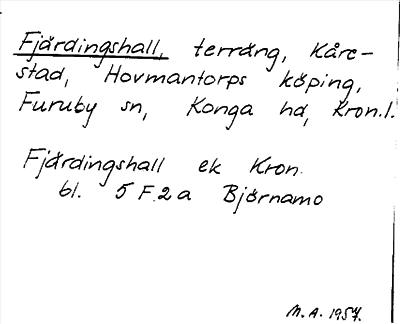 Fjärdingshall, terräng, Kåre-
stad, Hovmantorps köping,
Furuby sn, Konga hd, Kron.l.
Fjärdingshall ek Kron.
bl. 5 F.2a Björnamo
M.A. 1957.